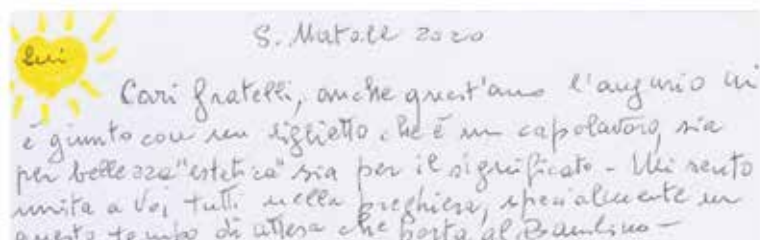 S. Natale 2020
Lui
Cari fratelli, anche quest'anno l'augurio mi
è giunto con un biglietto che è un capolavoro, sia
per bellezza "estetica" sia per il significato - Mi sento
unita a Voi tutti nella preghiera, specialmente in
questo tempo di attesa che porta al Bambino -